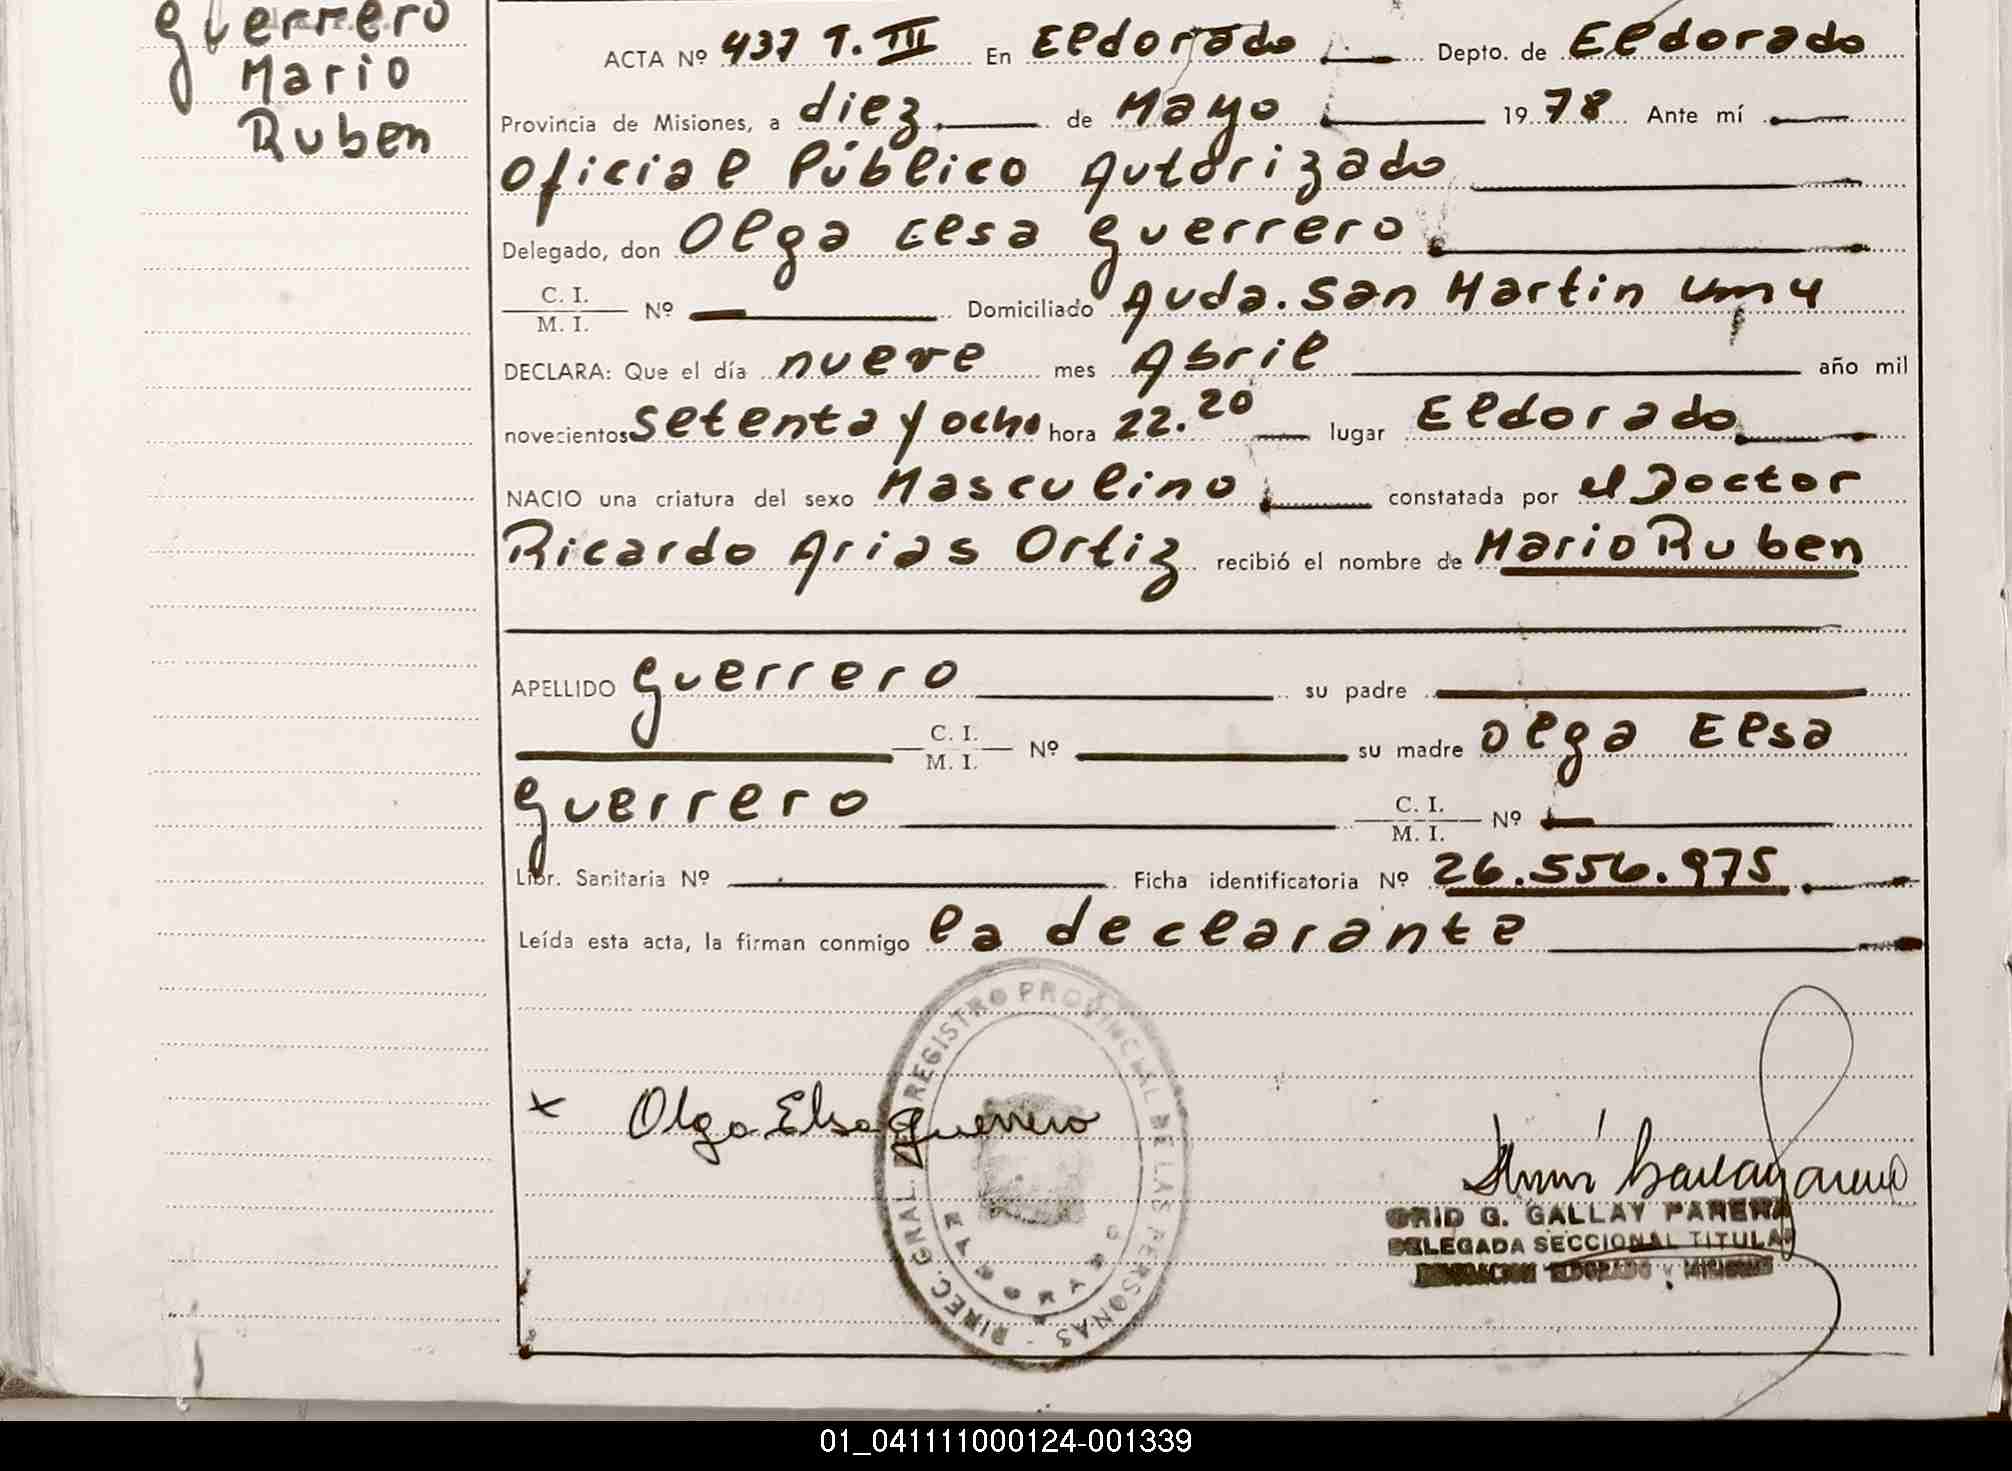 Guerrero
Mario
Ruben
ACTA Nº 437 T. III En Eldorado Depto. de Eldorado
Provincia de Misiones, a diez de Mayo 1978 Ante mí
Oficial Público Autorizado
Delegado, don Olga Elsa Guerrero
C. I.
M. I. Nº Domiciliado Avda. San Martin
DECLARA: Que el día nueve mes Abril año mil
novecientos setenta y ocho hora 22.20 lugar Eldorado
NACIO una criatura del sexo Masculino constatada por el Doctor
Ricardo Arias Ortiz recibió el nombre de Mario Ruben
APELLIDO Guerrero su padre
C. I.
M. I. Nº su madre Olga Elsa
Guerrero C. I.
M. I. Nº
Libr. Sanitaria Nº Ficha identificatoria Nº 26.556.975
Leída esta acta, la firman conmigo la declarante
DIREC. GRAL. DEL REGISTRO PROVINCIAL DE LAS PERSONAS
x Olga Elsa Guerrero
G. GALLAY PARERA
DELEGADA SECCIONAL TITULAR
DELEGACION ELDORADO MISIONES
01_041111000124-001339